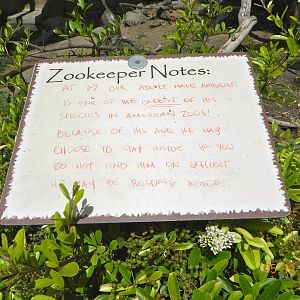 Zookeeper Notes:
AT 27 OUR ADULT MALE
IS ONE OF THE OLDEST OF HIS
SPECIES IN AMERICAN ZOOS!
BECAUSE OF HIS AGE HE MAY
CHOOSE TO STAY INSIDE. IF YOU
DO NOT FIND HIM ON EXHIBIT
HE MAY BE RESTING INSIDE.